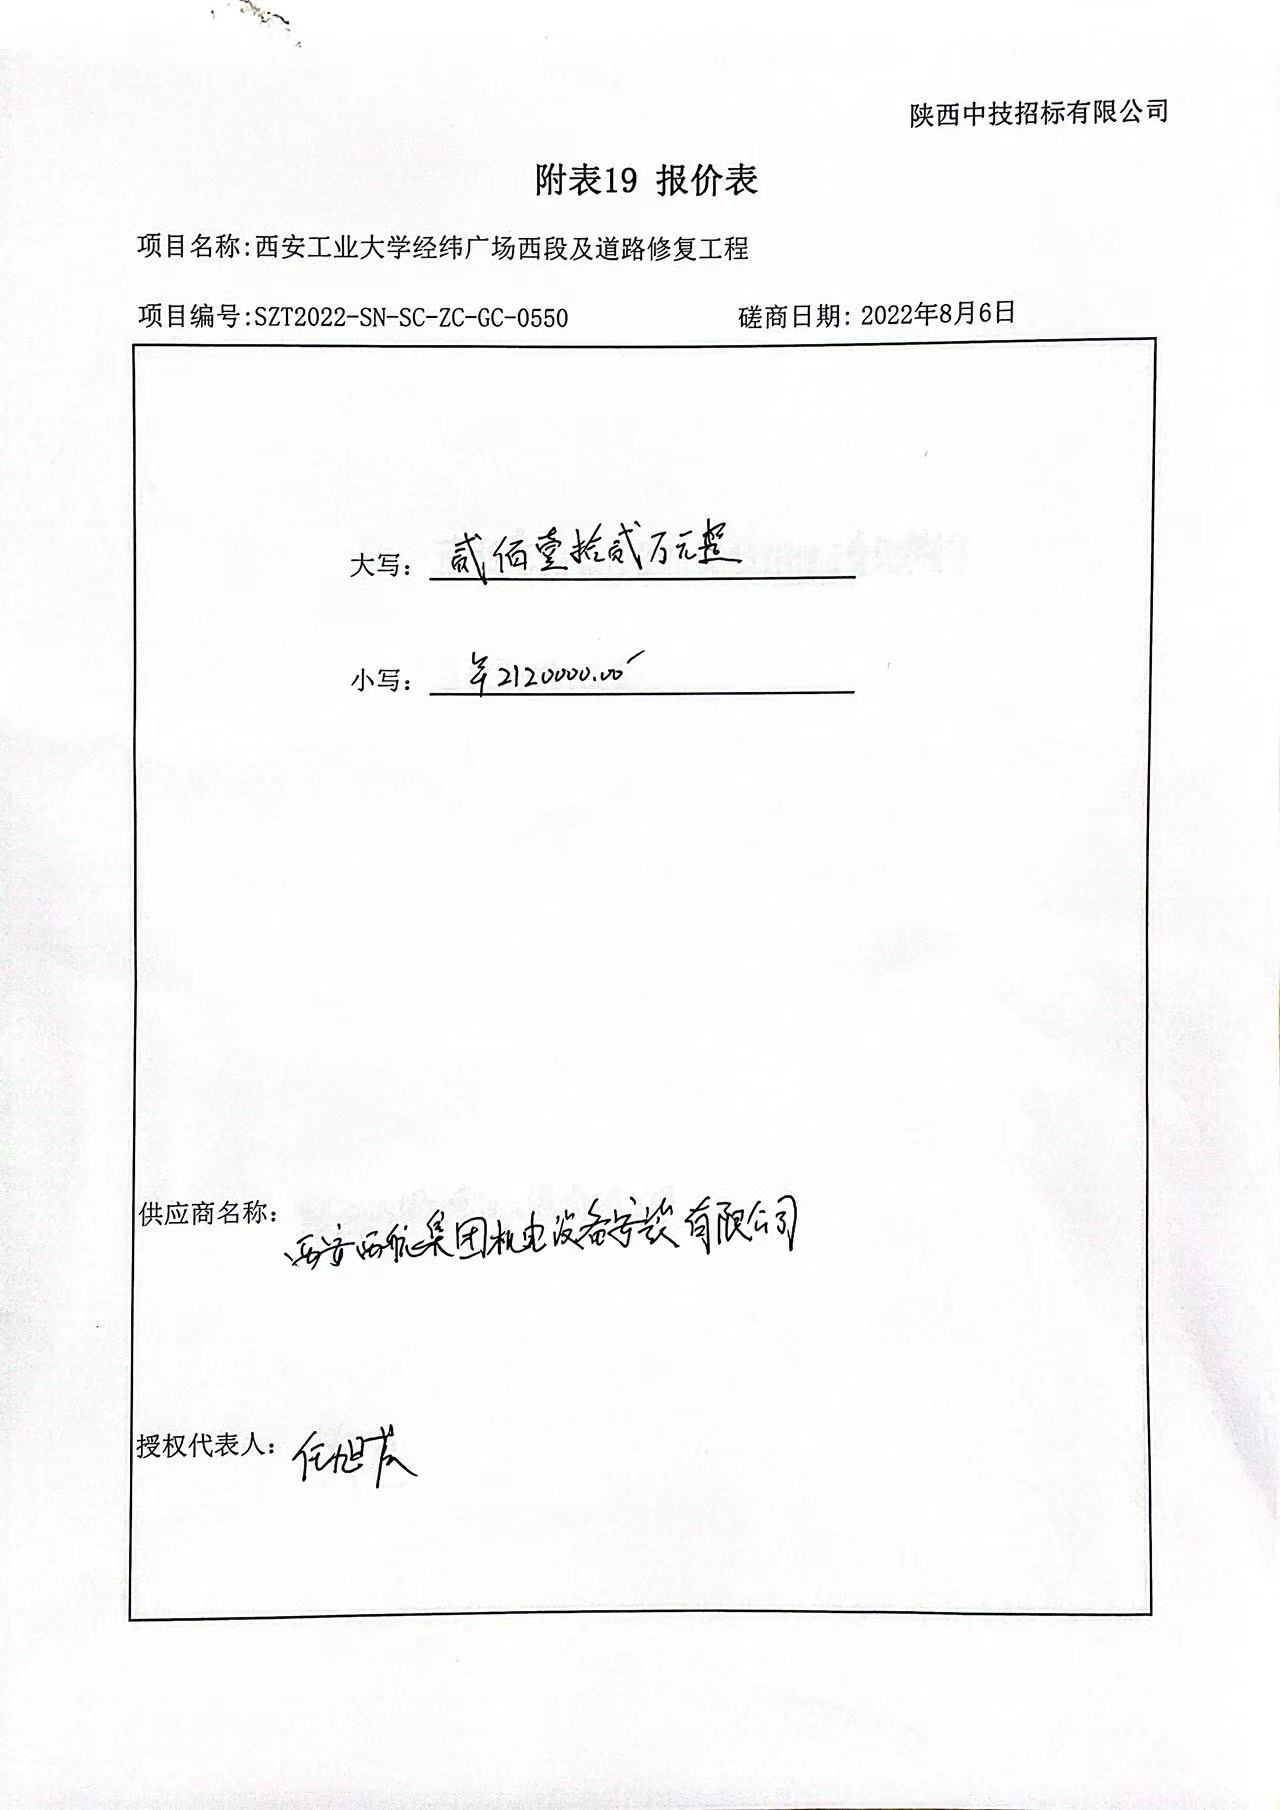 陕西中技招标有限公司
附表19 报价表
项目名称:西安工业大学经纬广场西段及道路修复工程
项目编号:SZT2022-SN-SC-ZC-GC-0550 磋商日期: 2022年8月6日
大写: 贰佰壹拾贰万元整
小写: ¥2120000.00
供应商名称: 西安西航集团机电设备安装有限公司
授权代表人: 任旭